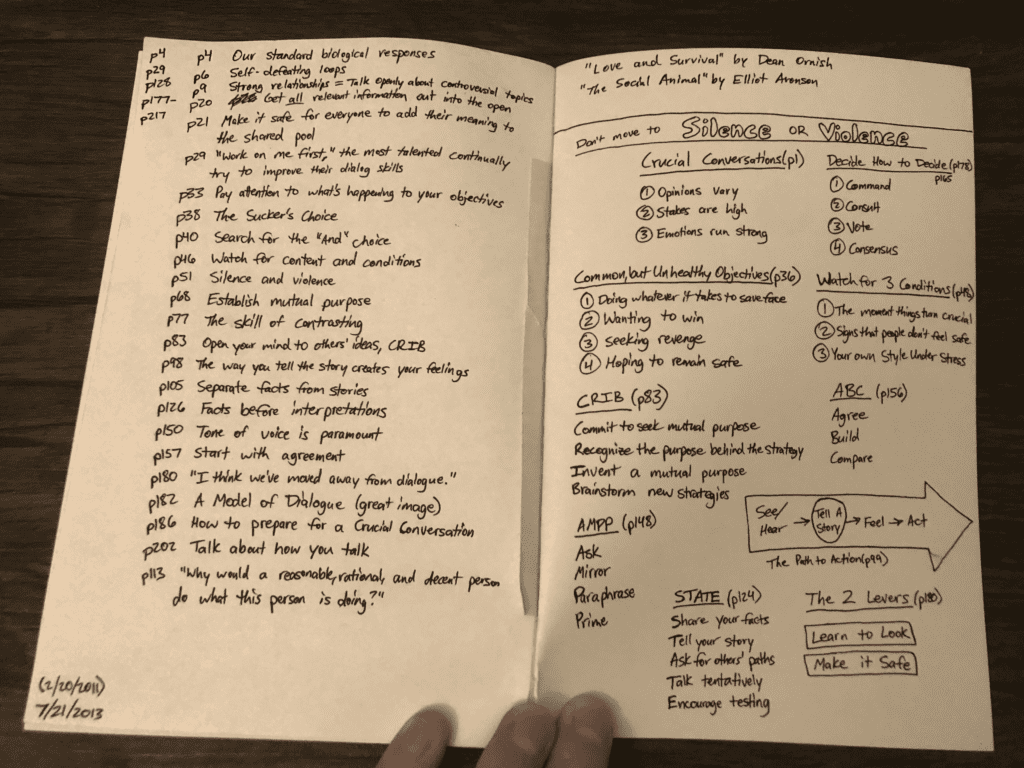 p4
p29
p128
p177-
p217
p4 Our standard biological responses
p6 Self-defeating loops
p9 Strong relationships = Talk openly about controversial topics
p20 Get all relevant information out into the open
p21 Make it safe for everyone to add their meaning to
the shared pool
p29 "Work on me first," the most talented continually
try to improve their dialog skills
p33 Pay attention to what's happening to your objectives
p38 The Sucker's Choice
p40 Search for the "And" choice
p46 Watch for content and conditions
p51 Silence and violence
p68 Establish mutual purpose
p77 The skill of contrasting
p83 Open your mind to others' ideas, CRIB
p98 The way you tell the story creates your feelings
p105 Separate facts from stories
p126 Facts before interpretations
p150 Tone of voice is paramount
p157 Start with agreement
p180 "I think we've moved away from dialogue."
p182 A Model of Dialogue (great image)
p186 How to prepare for a Crucial Conversation
p202 Talk about how you talk
p113 "Why would a reasonable, rational, and decent person
do what this person is doing?"
(2/20/2011)
7/21/2013
"Love and Survival" by Dean Ornish
"The Social Animal" by Elliot Aronson
Don't move to Silence or Violence
Crucial Conversations (p1)
① Opinions vary
② Stakes are high
③ Emotions run strong
Decide How to Decide (p178)
p165
① Command
② Consult
③ Vote
④ Consensus
Common, but Unhealthy Objectives (p36)
① Doing whatever it takes to save face
② Wanting to win
③ Seeking revenge
④ Hoping to remain safe
Watch for 3 Conditions
① The moment things turn crucial
② Signs that people don't feel safe
③ Your own Style Under Stress
CRIB (p83)
Commit to seek mutual purpose
Recognize the purpose behind the strategy
Invent a mutual purpose
Brainstorm new strategies
ABC (p156)
Agree
Build
Compare
See/
Hear → Tell A
Story → Feel → Act
The Path to Action (p99)
AMPP (p148)
Ask
Mirror
Paraphrase
Prime
STATE (p124)
Share your facts
Tell your story
Ask for others' paths
Talk tentatively
Encourage testing
The 2 Levers (p180)
Learn to Look
Make it Safe